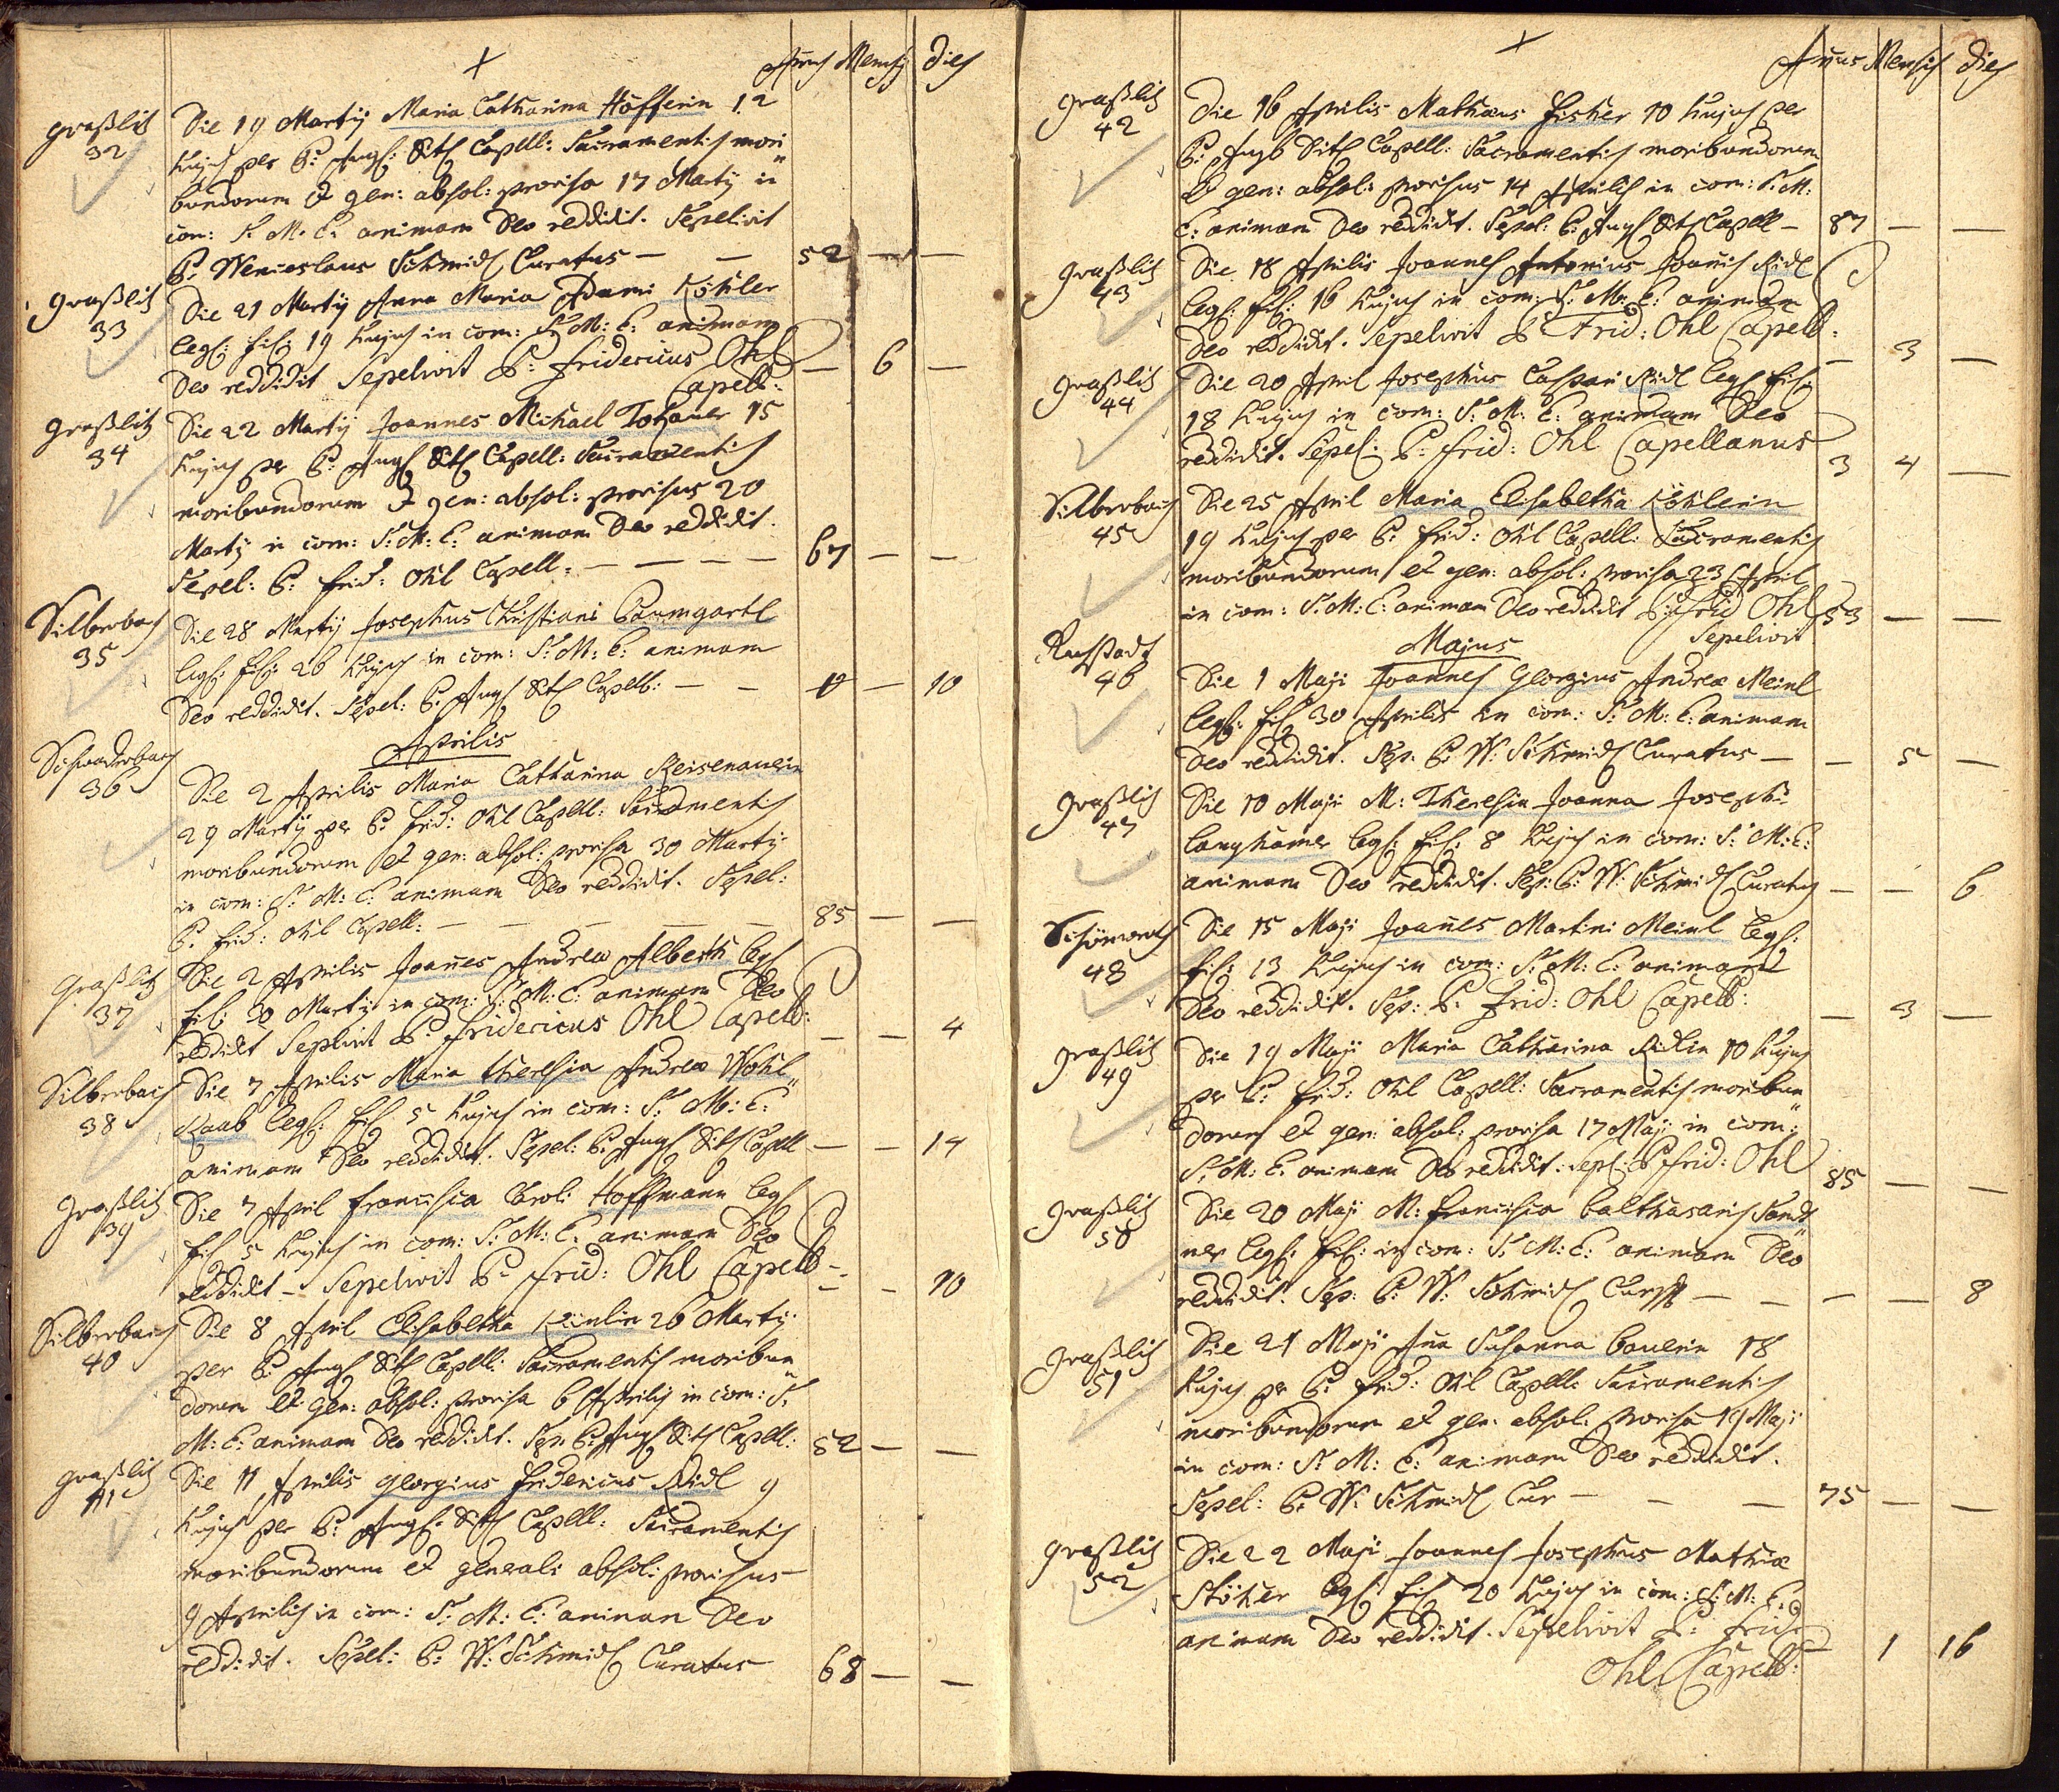 +
Annus Mensis Dies
Graßlitz Die 19 Martÿ Maria Catharina Höfferin 12
32 hujus per P: Capell: Sacramentis mori
bundorum et gen: absol: provisa 17 Martÿ in
com: S. M. E. animam Deo reddidit. Sepelivit
P. Wenceslaus Schmidl Curatus — — 52 — —
Graßlitz Die 21 Martÿ Anna Maria Adami Köhler
33 leg: fil: 19 hujus in com: S: M: E: animam
Deo reddidit Sepelivit P: Fridericus Ohl — 6 —
Capell:
Graßlitz Die 22 Martÿ Joannes Michael 15
34 hujus per P: Capell: Sacramentis
moribundorum et gen: absol: provisus 20
Martÿ in com: S: M: E: animam Deo reddidit.
Sepel: P: Frid: Ohl Capell. — — — — 67 — —
Silberbach Die 28 Martÿ Josephus Christiani Baumgartl
35 leg: fil: 26 hujus in com: S: M: E: animam
Deo reddidit. Sepel: P. Capell: — — — 10
Aprilis
Schwaderbach Die 2 Aprilis Maria Catharina Reisenauerin
36 29 Martÿ per P: Frid: Ohl Capell: Sacramentis
moribundorum et gen: absol: provisa 30 Martÿ
in com: S: M: E: animam Deo reddidit. Sepel:
P. Frid: Ohl Capell: — — — — 85 — —
Graßlitz Die 2 Aprilis Joannes Andreæ Alberth leg
37 fil: 30 Martÿ in com: S: M: E: animam Deo
reddidit Seplivit P: Fridericus Ohl Capell: — — 4
Silberbach Die 7 Aprilis Maria Theresia Andreæ Wohl
38 Raab leg: fil 5 hujus in com: S: M: E:
animam Deo reddidit. Sepel: P. Capell — — 14
Graßlitz Die 7 April Francisca Caroli Hoffmann leg
39 fil 5 hujus in com: S: M: E: animam Deo
reddidit — Sepelivit P: Frid: Ohl Capell — — 10
Silberbach Die 8 April Elisabetha 26 Martÿ
40 per P: Capell: Sacramentis moribun
dorum et gen: absol: provisa 6 Aprilis in com: S.
M: E: animam Deo reddidit. Sep. P: Capell: 52 — —
Graßlitz Die 11 Aprilis Georgius Fridericus Ridl 9
41 hujus per P: Capell: Sacramentis
moribundorum et generali absol: provisus
9 Aprilis in com: S: M: E: animam Deo
reddidit. Sepel: P: W: Schmidl Curatus 68 — —
+
Annus Mensis Dies
Graßlitz Die 16 Aprilis Mathæus Fischer 10 hujus per
42 P: Capell: Sacramentis moribundorum
et gen: absol: provisus 14 Aprilis in com: S. M:
E: animam Deo reddidit. Sepel: P: Capell — 87 — —
Graßlitz Die 18 Aprilis Joannes Antonius Joanis Ridl
43 leg: fil: 16 hujus in com: S: M: E: animam
Deo reddidit. Sepelivit P Frid: Ohl Capell: — 3 —
Graßlitz Die 20 April Josephus Caspari Ridl leg fil
44 18 hujus in com: S: M: E: animam Deo
reddidit. Sepel: P: Frid: Ohl Capellanus 3 4 —
Silberbach Die 25 April Maria Elisabetha Köhlerin
45 19 hujus per P: Frid: Ohl Capell: Sacramentis
moribundorum et gen: absol: provisa 23 April
in com: S: M: E: animam Deo reddidit P: Frid Ohl 53 — —
Sepelivit
Majus
46 Die 1 Maji Joannes Georgius Andreæ Meinl
leg: fil 30 Aprilis in com: S: M: E: animam
Deo reddidit. Sep. P. W: Schmidl Curatus — — 5 —
Graßlitz Die 10 Maji M: Theresia Joanna Josephi
47 Langhamer leg: fil: 8 hujus in com: S: M: E:
animam Deo reddidit. Sep: P: W: Schmidl Curatus — — 6
Schönwerth Die 15 Maji Joañes Martini Meinl leg:
48 fil: 13 hujus in com: S: M: E: animam
Deo reddidit. Sep: P: Frid: Ohl Capell: — 3 —
Graßlitz Die 19 Maji Maria Catharina Ridlin 10 hujus
49 per P: Frid: Ohl Capell: Sacramentis moribun
dorum et gen: absol: provisa 17 Maji in com:
S: M: E: animam Deo reddidit: Sepl: P Frid: Ohl 85 — —
Graßlitz Die 20 Maji M: Francisca Balthasaris Sand
50 ner leg: fil: in com: S: M: E: animam Deo
reddidit. Sep: P: W: Schmidl — — — — 8
Graßlitz Die 21 Maji Aña Susanna Bauerin 18
51 hujus per P: Frid: Ohl Capell: Sacramentis
moribundorum et gen: absol: provisa 19 Maji
in com: S: M: E: animam Deo reddidit.
Sepel: P: W: Schmidl Cur — — — 75 — —
Graßlitz Die 22 Maji Joannes Josephus Mathiæ
52 Stöher leg: fil 20 hujus in com: S: M: E:
animam Deo reddidit. Sepelivit P: Frid: — 1 16
Ohl Capell: